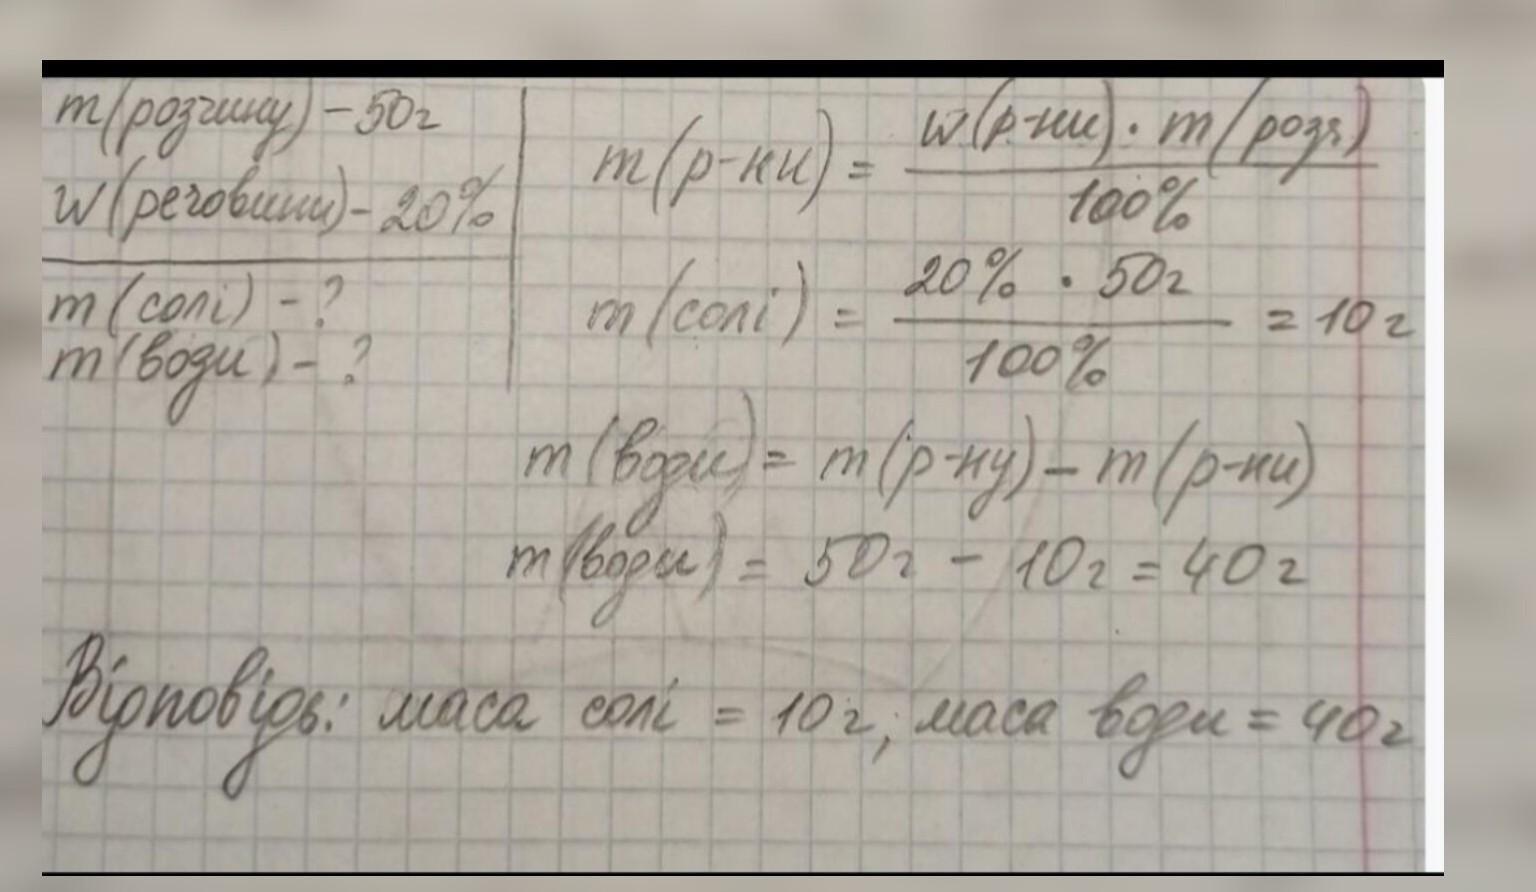 m(розчину) – 50г
w(речовини) – 20%
m(солі) – ?
m(води) – ?
m(р-ни) = w(р-ни) · m(розч) / 100%
m(солі) = 20% · 50г / 100% = 10г
m(води) = m(р-ну) – m(р-ни)
m(води) = 50г – 10г = 40г
Відповідь: маса солі = 10г; маса води = 40г